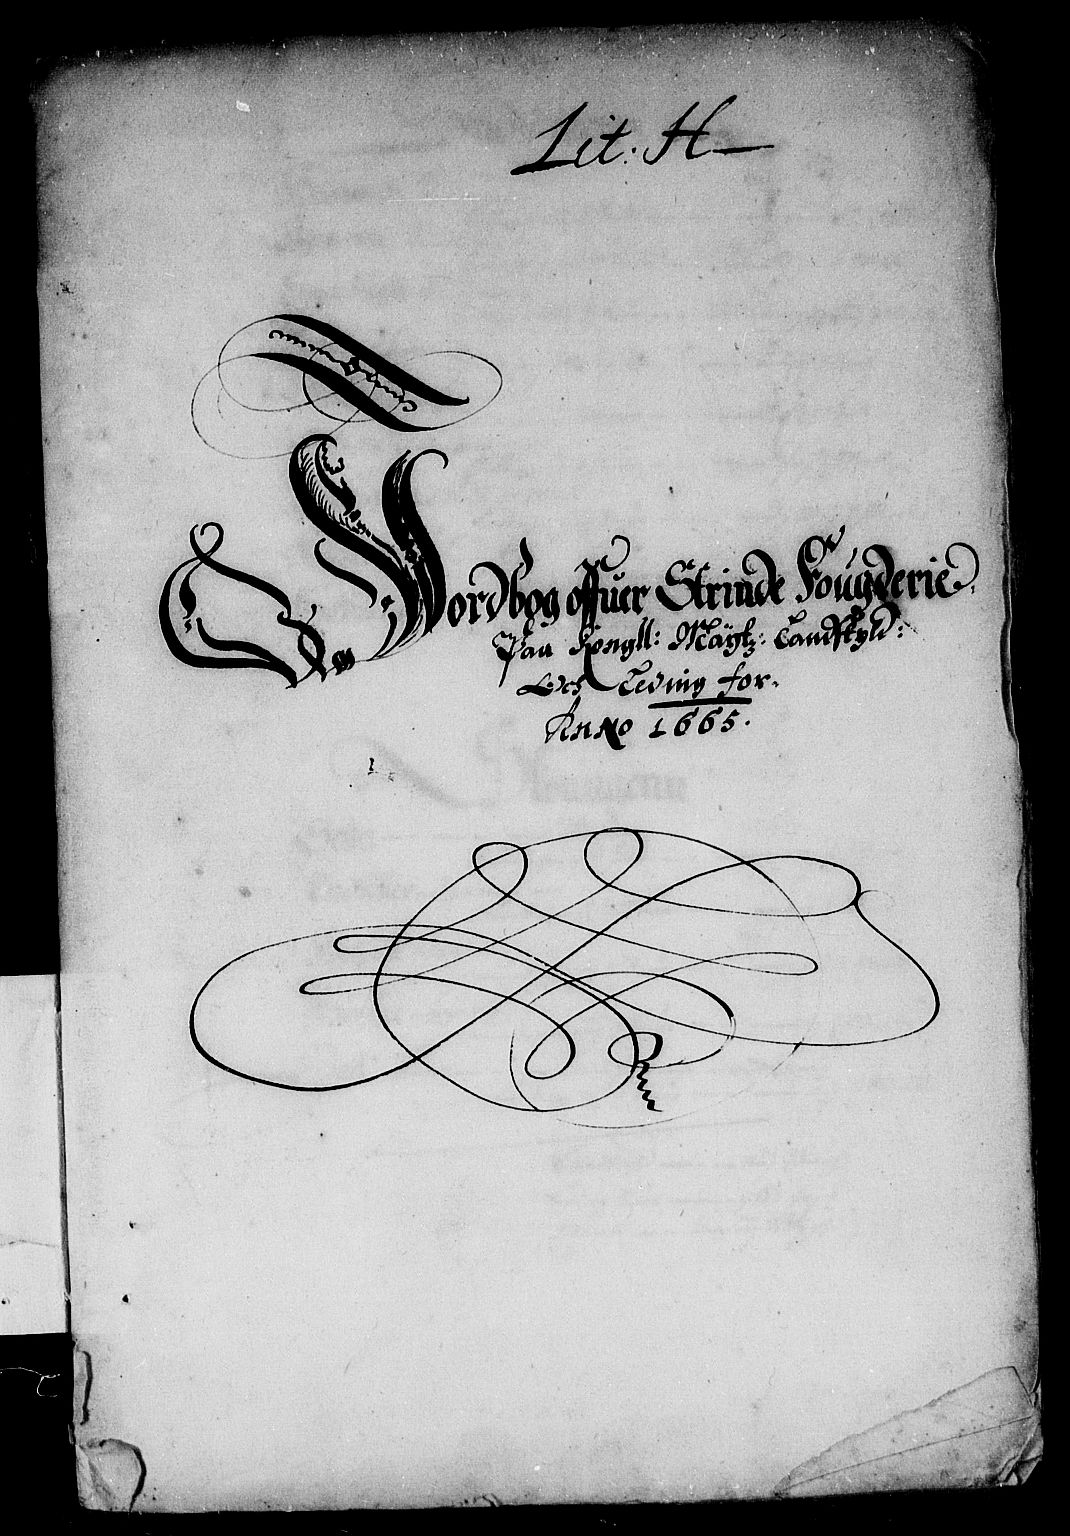 Lit: H
Jordbog offuer Strinde Fougderie
Paa Kongll: Maÿtz: Landskyld:
Och Leding for
Anno 1665.